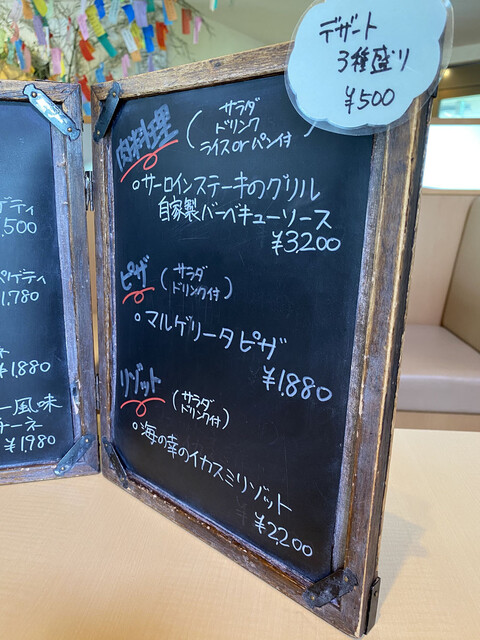 デザート
3種盛り
¥500
肉料理
(サラダ
ドリンク
ライスorパン付)
○サーロインステーキのグリル
自家製バーベキューソース
¥3,200
ピザ
(サラダ
ドリンク付)
○マルゲリータピザ
¥1,880
リゾット
(サラダ
ドリンク付)
○海の幸のイカスミリゾット
¥2,200
ゲティ
,500
ペゲティ
1,780
¥1,880
ー風味
チーネ
¥1,980